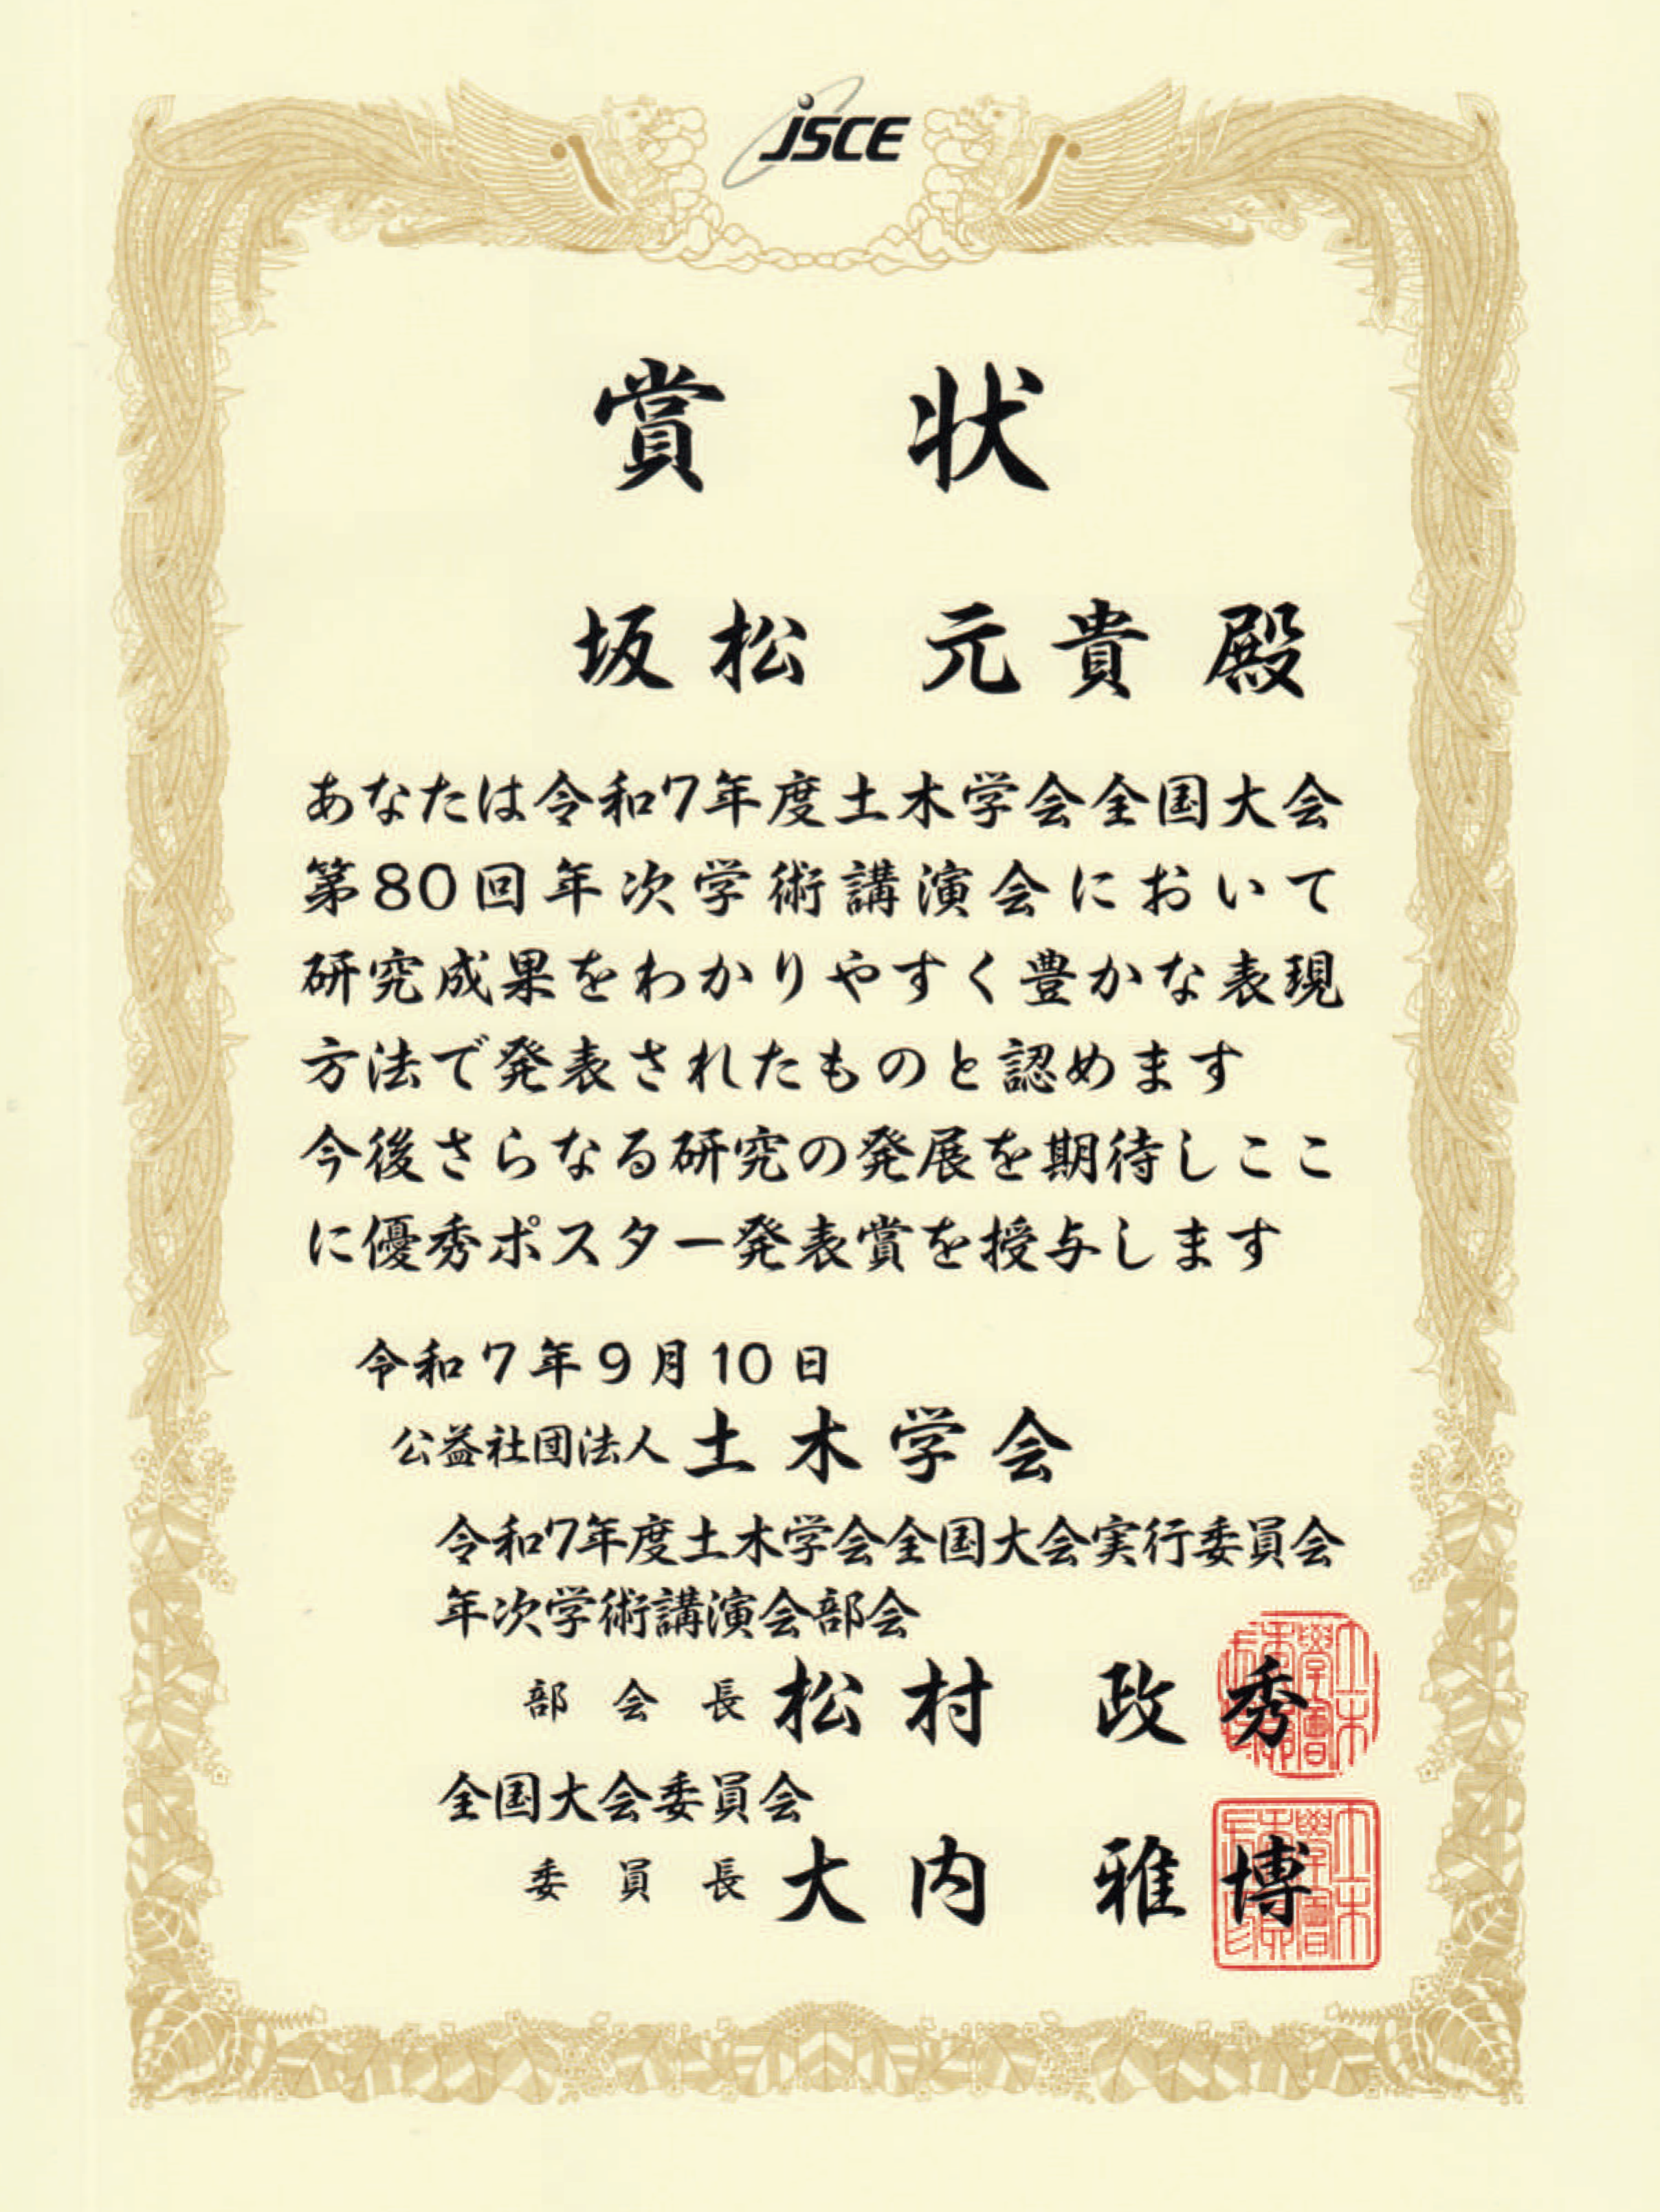 JSCE
賞 状
坂松 元貴 殿
あなたは令和7年度土木学会全国大会
第80回年次学術講演会において
研究成果をわかりやすく豊かな表現
方法で発表されたものと認めます
今後さらなる研究の発展を期待しここ
に優秀ポスター発表賞を授与します
令和7年9月10日
公益社団法人 土木学会
令和7年度土木学会全国大会実行委員会
年次学術講演会部会
部会長 松村 政秀
全国大会委員会
委員長 大内 雅博